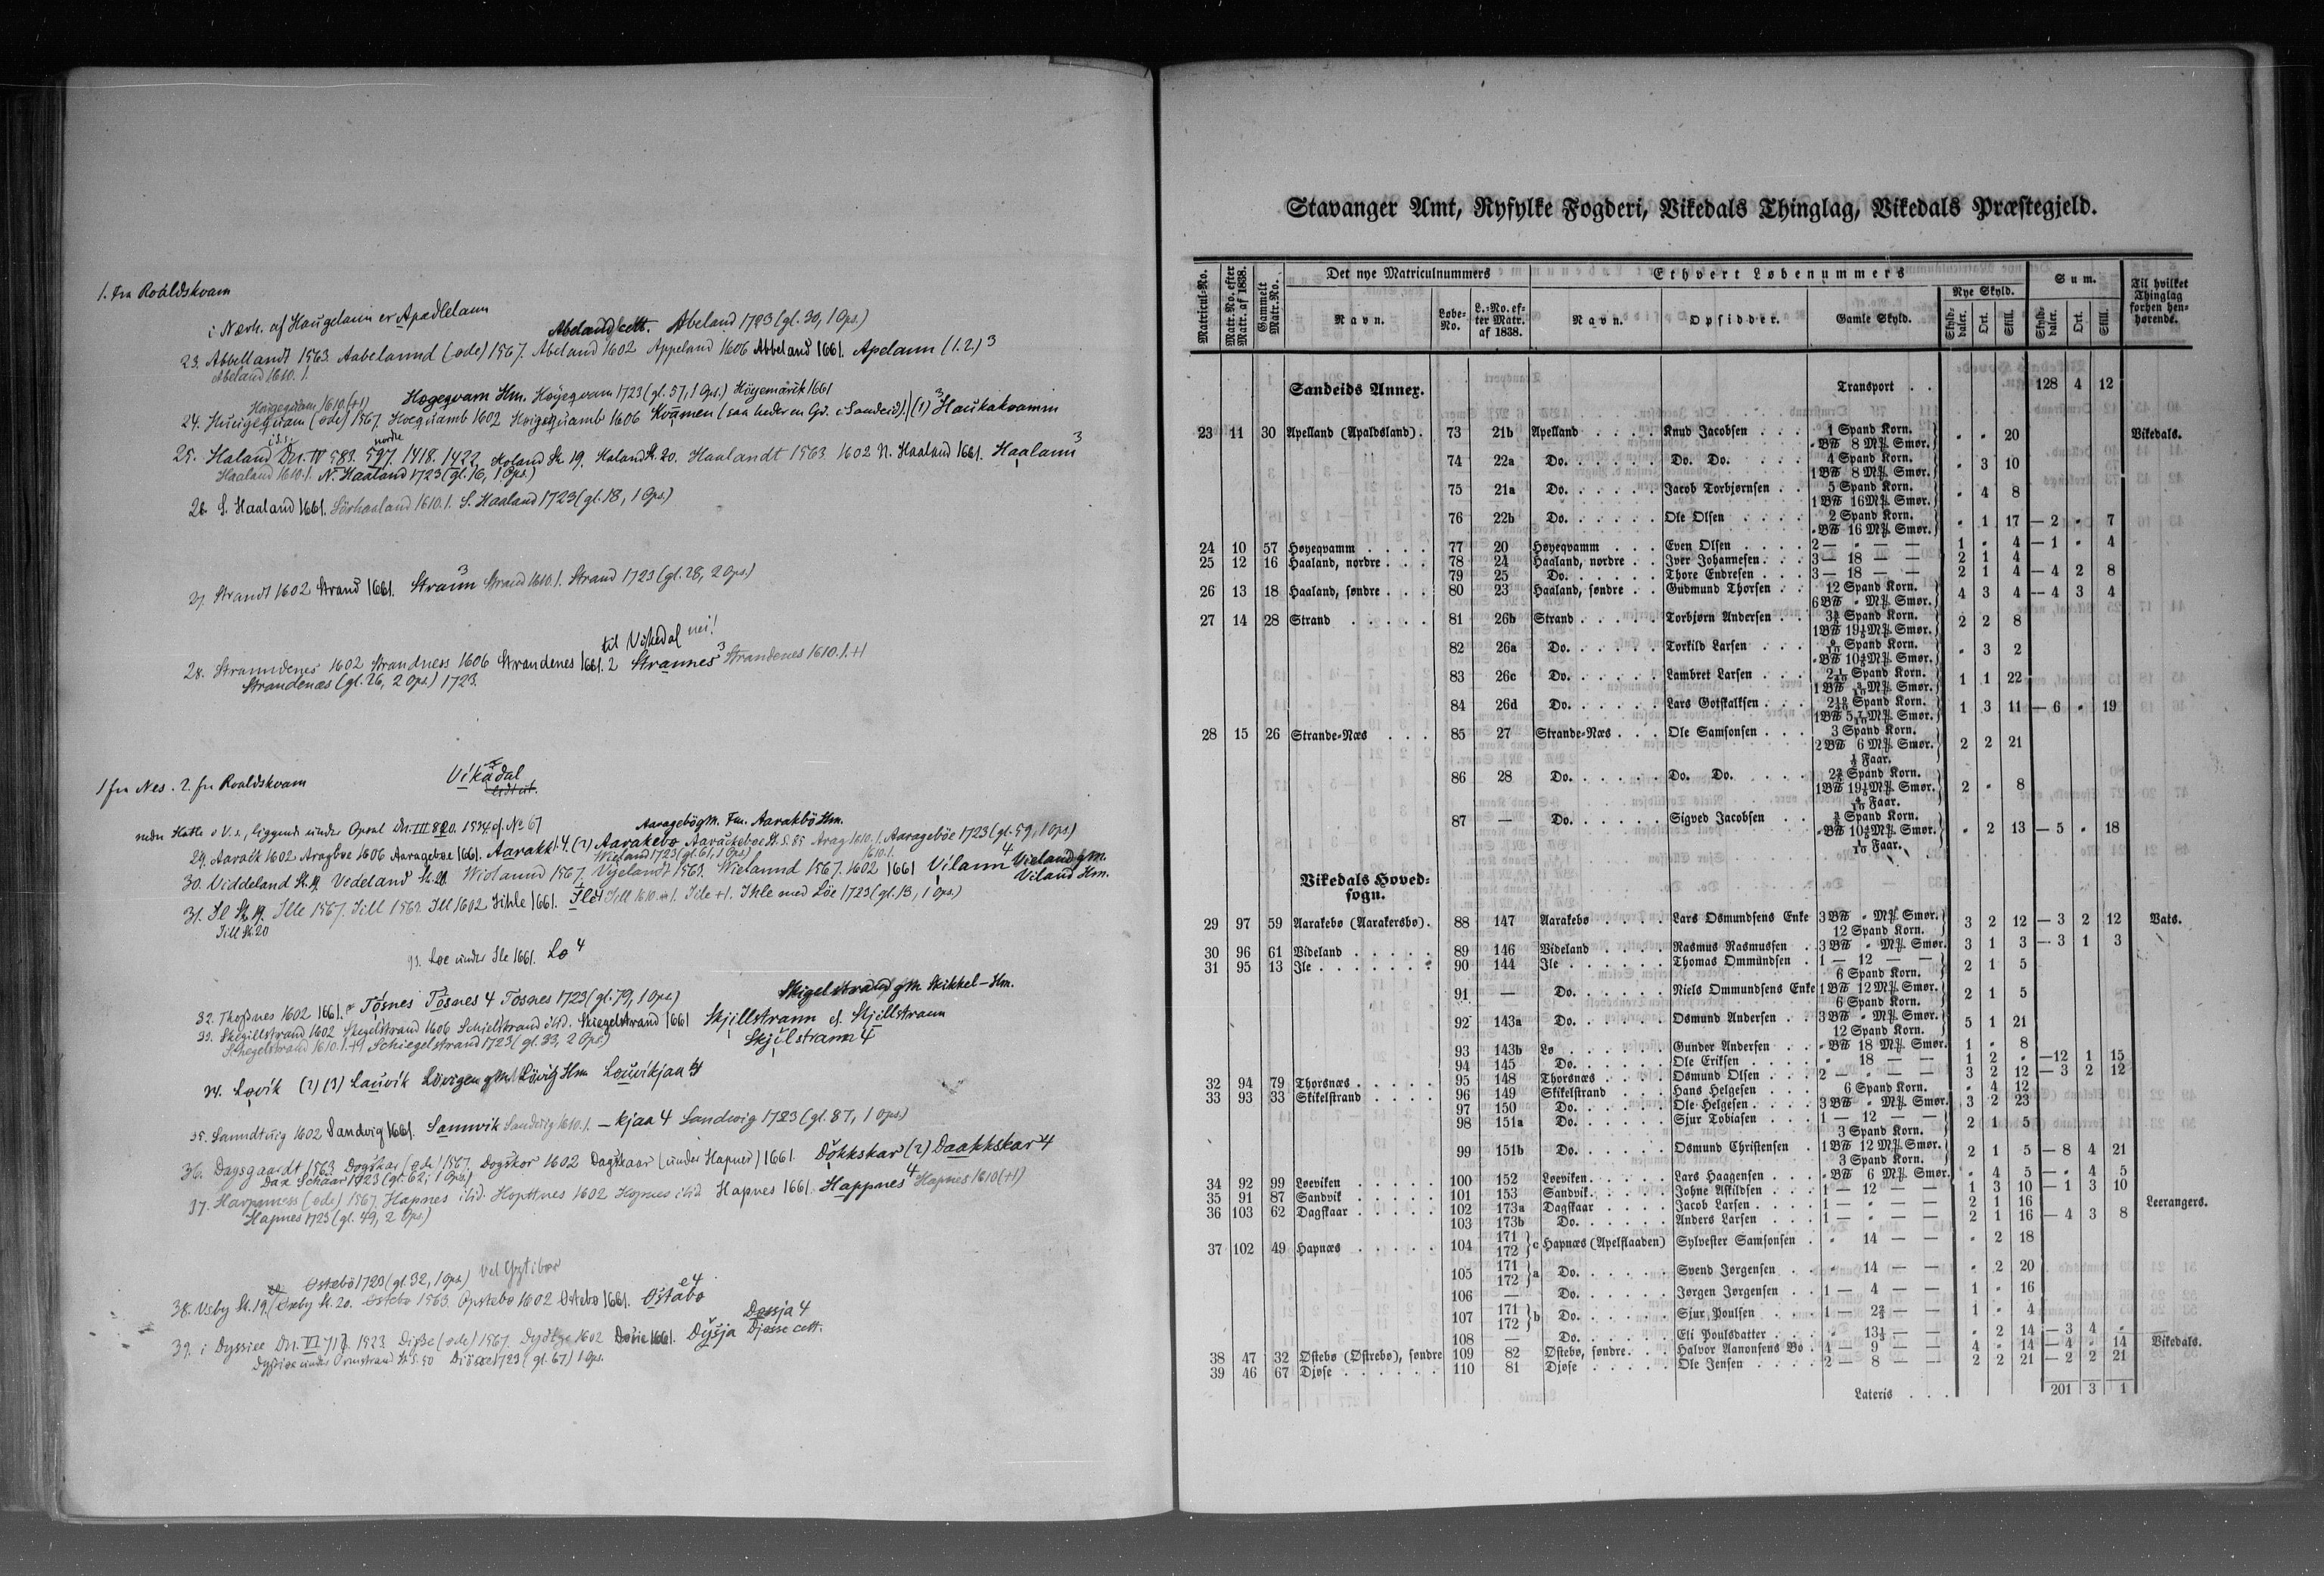 1. fra Roaldskvam
i Nærh. af Haugelann er Apadlelann
Abeland cett. Abeland 1723 (gl. 30, 1 Ops.)
23. Abbellandt 1563. Aabelannd (øde) 1567. Abeland 1602 Appeland 1606 Abbeland 1661. Apelann (1.2) 3
Abeland 1610. 1.
Høgeqvam Hm. Höyeqvam 1723 (gl. 57, 1 Ops.) Höyemarck 1661
24. (øde) 1567. 1602 1606 Kvamen (saa heder en Gd. i Sandeid). (1) Haukakvamm 3
nordre
25. Haland Dn. IV 583. 597. 1418. 1422. Holand St. 19. Haland St. 20. Haalandt 1563. 1602 N. Haaland 1661. Haalann 3
Haaland 1610. 1. N. Haaland 1723 (gl. 16, 1 Ops.)
26. S. Haaland 1661. Sörhaaland 1610. 1. S. Haaland 1723 (gl. 18, 1 Ops.)
27. Strandt 1602 Strand 1661. Strann 3 Strand 1610. 1. Strand 1723 (gl. 28, 2 Ops.)
til Vikedal nei!
28. Stranndenes 1602 Strandness 1606 Strandenes 1661. 2 Strannes 3 Strandenes 1610. 1. +1
Strandenæs (gl. 26, 2 Ops.) 1723.
1 fra Nes. 2. fra Roaldskvam
Vikadal
Aaragebö gM. Fm. Aarakbö Hm.
29. Aarack 1602 Aragboe 1606 Aarageboe 1661. Aarakk 1.4. (2) Aarakebø Aarackeboe St. S. 85 Arag 1610. 1. Aarageböe 1723 (gl. 59, 1 Ops.)
Wieland 1723 (gl. 61, 1 Ops.) 1610. 1.
30. Viddeland St. 19. Vedeland St. 20. Wiolannd 1567. Vijelandt 1563. Wielannd 1567. 1602 1661 Vilann 4 Vieland gM.
Viland Hm.
31. Il St. 19. Ille 1567. Jill 1563. Ill 1602 Jihle 1661. Ile 4 Jill 1610. 1. Jile +1. Ihle med Löe 1723 (gl. 13, 1 Ops.)
Jill St. 20
93. Loe under Ile 1661. Lo 4
32. Thoßnes 1602 1661. Tosnes Tösnes 4 Tosnes 1723 (gl. 79, 1 Ops.)
Skigelstrand gM. Skikkel- Hm.
33. Skegillstrand 1602 Skegelstrand 1606 Schielstrand ibid. Skiegelstrand 1661 Skjillstrann el. Skjellstrann
Schiegelstrand 1723 (gl. 33, 2 Ops.) Skjilstrann 4
34. Lovik (2) (3) Lauvik Lövigen gM. Lövig Hm Louvikjaa 4
35. Sanndtuig 1602 Sandvig 1661. Sannvik Sandvig 1610. 1. –kjaa 4 Sandwig 1723 (gl. 87, 1 Ops.)
36. Dagsgaardt 1563 Dogskar (øde) 1567. Dogskor 1602 Dagskaar (under Hapnes) 1661. Dokkskar (2) Daakkskar 4
Dax Schaar 1723 (gl. 62, 1 Ops.)
37. (øde) 1567. Hapnes ibid. Hopttnes 1602 Hopnes ibid Hapnes 1661. Happnes 4 Hapnes 1610 (+1)
Hapnes 1723 (gl. 49, 2 Ops.)
Østebö 1723 (gl. 32, 1 Ops.)
38. Vsby St. 19. St. 20. Ostebo 1563. Opstebo 1602 Ostebo 1661. Østabø 4
Døssja 4
39. i Dyssiee Dn. VI 1523. Dijße (øde) 1567. 1602 1661. Dysja Djøsse cett.
under Ormstrand St. S. 50 1723 (gl. 67) 1 Ops.
Stavanger Amt, Ryfylke Fogderi, Vikedals Thinglag, Vikedals Præstegjeld.
Matricul-No. Matr.No. efter Matr. af 1838. Gammelt Matr.-No. Det nye Matriculnummers Ethvert Løbenummers Sum. Til hvilket Thinglag forhen henhørende.
Navn. Løbe-No. L.-No. efter Matr. af 1838. Navn. Opsidder. Gamle Skyld. Nye Skyld. Skylddaler. Ort. Skill. Skylddaler. Ort. Skill.
Sandeids Annex. Transport . . 128 4 12
23 11 30 Apelland (Apaldsland). 73 21b Apelland . . . . Knud Jacobsen . . . 1 Spand Korn. " B℔ 8 M℔ Smør. " " 20 Vikedals.
74 22a Do. . . . . . Do. Do. . . . . 4 Spand Korn. 1 B℔ 8 M℔ Smør. " 3 10
75 21a Do. . . . . . Jacob Torbjørnsen . . 5 Spand Korn. 1 B℔ 16 M℔ Smør. " 4 8
76 22b Do. . . . . . Ole Olsen . . . . 2 Spand Korn. " B℔ 16 M℔ Smør. " 1 17 — 2 " 7
24 10 57 Høyeqvamm . . . . 77 20 Høyeqvamm . . . Even Olsen . . . . 2 — " — — 1 " 4 — 1 " 4
25 12 16 Haaland, nordre . . . 78 24 Haaland, nordre . . Iver Johannesen . . . 3 — 18 — — 2 1 4
79 25 Do. . . . . . Thore Endresen . . . 3 — 18 — — 2 1 4 — 4 2 8
26 13 18 Haaland, søndre . . . 80 23 Haaland, søndre . . Gudmund Thorsen . . 12 Spand Korn. 6 B℔ " M℔ Smør. 4 3 4 — 4 3 4
27 14 28 Strand . . . . . 81 26b Strand . . . . . Torbjørn Andersen . . Spand Korn. 1 B℔ M℔ Smør. 2 2 8
82 26a Do. . . . . . Torkild Larsen . . . Spand Korn. " B℔ M℔ Smør. " 3 2
83 26c Do. . . . . . Lambret Larsen . . . Spand Korn. 1 B℔ M℔ Smør. 1 1 22
84 26d Do. . . . . . Lars Gotskalksen . . . Spand Korn. 1 B℔ M℔ Smør. 1 3 11 — 6 " 19
28 15 26 Strande-Næs . . . 85 27 Strande-Næs . . . Ole Samsonsen . . . 3 Spand Korn. 2 B℔ 6 M℔ Smør. Faar. 2 2 21
86 28 Do. . . . . . Do. Do. . . . . Spand Korn. 1 B℔ M℔ Smør. Faar. 2 " 8
87 — Do. . . . . . Sigved Jacobsen . . Spand Korn. " B℔ M℔ Smør. Faar. " 2 13 — 5 " 18
Vikedals Hovedsogn.
29 97 59 Aarakebø (Aarakersbø). 88 147 Aarakebø . . . . Lars Osmundsens Enke 3 B℔ " M℔ Smør. 12 Spand Korn. 3 2 12 — 3 2 12 Vats.
30 96 61 Videland . . . . . 89 146 Videland . . . . Rasmus Rasmussen . 3 B℔ " M℔ Smør. 3 1 3 — 3 1 3
31 95 13 Ile . . . . . . . 90 144 Ile . . . . . . Thomas Ommundsen . 1 — 12 — — 6 Spand Korn. 2 1 5
91 — Do. . . . . . Niels Ommundsens Enke 1 B℔ 12 M℔ Smør. 6 Spand Korn. 2 1 5
92 143a Do. . . . . . Osmund Andersen . . 3 B℔ " M℔ Smør. 12 Spand Korn. 5 1 21
93 143b Lø . . . . . . Gunder Andersen . . " B℔ 18 M℔ Smør. 1 " 8
94 145 Do. . . . . . Ole Eriksen . . . . " 18 — — 1 2 " — 12 1 15
32 94 79 Thorsnæs . . . . . 95 148 Thorsnæs . . . . Osmund Olsen . . . 2 — " — — 3 2 12 — 3 2 12
33 93 33 Skikelstrand . . . . 96 149 Skikelstrand . . . Hans Helgesen . . . 6 Spand Korn. " 4 12
97 150 Do. . . . . . Ole Helgesen . . . . 3 B℔ " M℔ Smør. 3 2 23
98 151a Do. . . . . . Sjur Tobiasen . . . 1 — 12 — — 3 Spand Korn. 2 1 5
99 151b Do. . . . . . Osmund Christensen . 1 B℔ 12 M℔ Smør. 3 Spand Korn. 2 1 5 — 8 4 21
34 92 99 Loeviken . . . . . 100 152 Loeviken . . . . . Lars Haagensen . . . " B℔ 6 M℔ Smør. " 4 5 — " 4 5
35 91 87 Sandvik . . . . . 101 153 Sandvik . . . . . Johne Askildsen . . . 1 — 12 — — 1 3 10 — 1 3 10
36 103 62 Dagskaar . . . . . 102 173a Dagskaar . . . . Jacob Larsen . . . . 1 — " — — 2 1 16 Leerangers.
103 173b Do. . . . . . Anders Larsen . . . 1 — " — — 2 1 16 — 4 3 8
37 102 49 Hapnæs . . . . . 104 171 172 c Hapnæs (Apelslaaden) Sylvester Samsonsen . " 14 — — " 2 18
105 171 172 a Do. . . . . . Svend Jørgensen . . " 14 — — " 2 20
106 — Do. . . . . . Jørgen Jørgensen . . 1 — 4 — — 1 " 16
107 171 172 b Do. . . . . . Sjur Poulsen . . . 1 — 2⅔ — — 1 " 4
108 — Do. . . . . . Eli Poulsdatter . . . " 13⅓ — — " 2 14 — 3 4 "
38 47 32 Østebø (Østrebø), søndre 109 82 Østebø, søndre. . . Halvor Aanonsens Bo . 4 — 9 — — 4 " 14 — 4 " 14 Vikedals.
39 46 67 Djøse . . . . . . 110 81 Djøse . . . . . Ole Jensen . . . . 2 — 8 — — 2 2 21 — 2 2 21
Lateris . . . 201 3 1